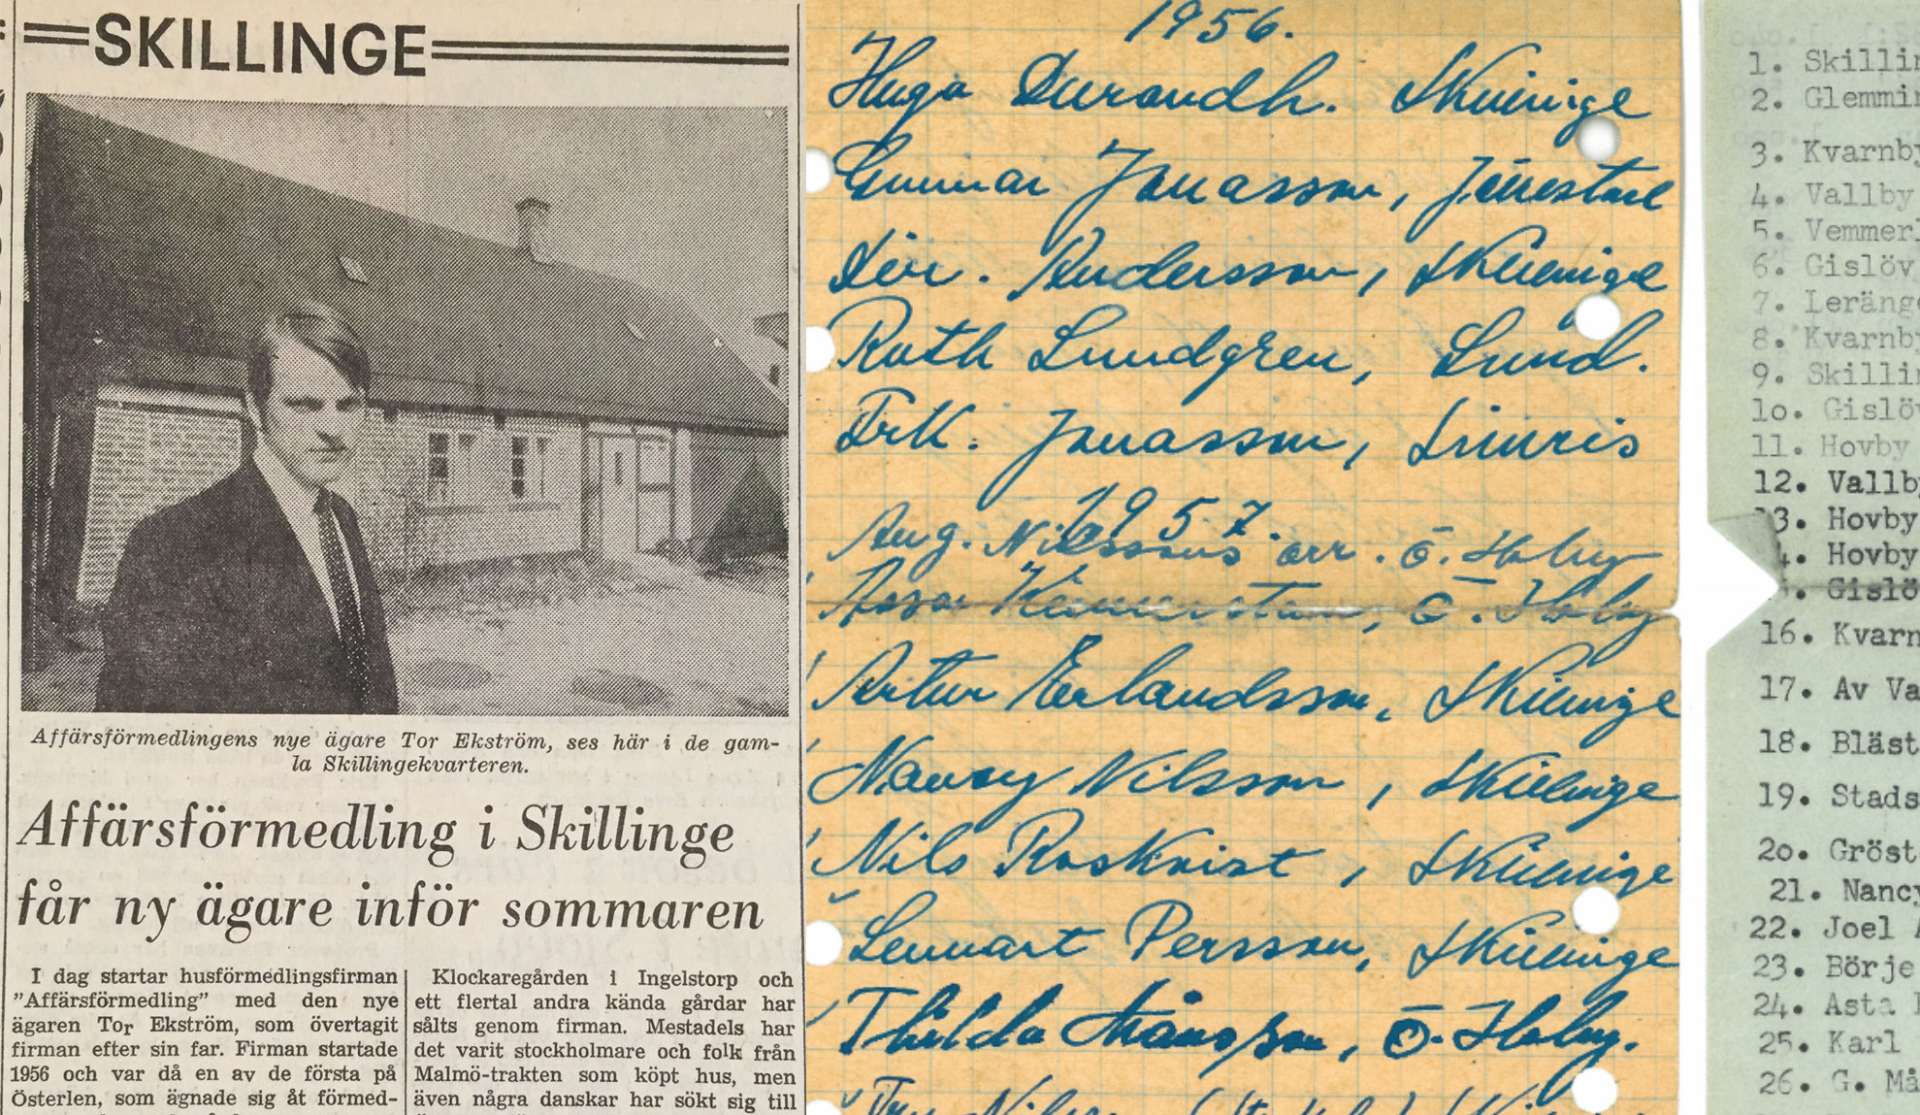 SKILLINGE
Affärsförmedlingens nye ägare Tor Ekström, ses här i de gam-
la Skillingekvarteren.
Affärsförmedling i Skillinge
får ny ägare inför sommaren
I dag startar husförmedlingsfirman
"Affärsförmedling" med den nye
ägaren Tor Ekström, som övertagit
firman efter sin far. Firman startade
1956 och var då en av de första på
Österlen, som ägnade sig åt förmed-
Klockaregården i Ingelstorp och
ett flertal andra kända gårdar har
sålts genom firman. Mestadels har
det varit stockholmare och folk från
Malmö-trakten som köpt hus, men
även några danskar har sökt sig till
1956.
Hugo Durandh. Skillinge
Gunnar Jonasson, Järrestad
Dir. Andersson, Skillinge
Ruth Lundgren, Lund.
Frk. Jonasson, Simris
1957.
Aug. Nilssons arr. Ö. Hoby
Ö. Hoby
Artur Erlandsson, Skillinge
Nancy Nilsson, Skillinge
Nils Roskvist, Skillinge
Lennart Persson, Skillinge
Thilda Månsson, Ö. Hoby.
1. Skillin
2. Glemmin
3. Kvarnby
4. Vallby
5. Vemmerl
6. Gislöv
7. Leränge
8. Kvarnby
9. Skillin
10. Gislöv
11. Hovby
12. Vallby
13. Hovby
4. Hovby
Gislö
16. Kvarn
17. Av Va
18. Bläst
19. Stads
20. Gröst
21. Nancy
22. Joel A
23. Börje
24. Asta
25. Karl
26. G. Må